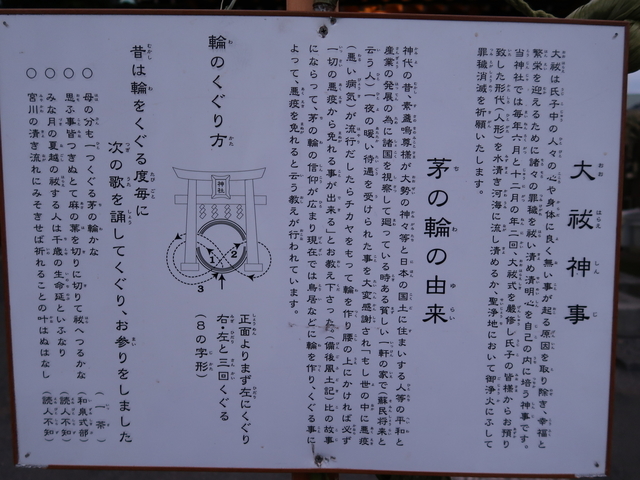 大祓神事
大祓は氏子中の人々の心や身体に良く無い事が起る原因を取り除き、幸福と
繁栄を迎えるために諸々の罪穢を祓い清め清明心を自己の内に培う神事です。
当神社では毎年六月と十二月の年二回、大祓式を厳修し氏子の皆様からお預り
致した形代（人形）を水清き河海に流し清めるか、聖浄地において御浄火にふして
罪穢消滅を祈願いたします。
茅の輪の由来
神代の昔、素盞嗚尊様が大勢の神々等と日本の国土に住まいする人等の平和と
産業の発展の為に諸国を視察して廻っている時ある貧しい一軒の家で蘇民将来と
云う人）一夜の暖い待遇を受けられた事を大変感謝され「もし世の中に悪疫
（悪い病気）が流行だしたらチカヤをもって輪を作り腰の上にかければ必ず
一切の悪疫から免れる事が出来る」とお教え下さった（備後風土記）比の故事
にならって、茅の輪の信仰が広まり現在では鳥居などに輪を作り、くぐる事に
よって、悪疫を免れると云う教えが行われています。
輪のくぐり方
神社
1
2
3
正面よりまず左にくぐり
右・左と三回くぐる
（８の字形）
昔は輪をくぐる度毎に
次の歌を誦してくぐり、お参りをしました
○ 母の分も一つくぐる茅の輪かな （一茶）
○ 思ふ事皆つきぬとて麻の葉を切りに切りて祓へつるかな （和泉式部）
○ みな月の夏越の祓する人は千歳の生命延といふなり （読人不知）
○ 宮川の清き流れにみそぎせば祈れることの叶はぬはなし （読人不知）